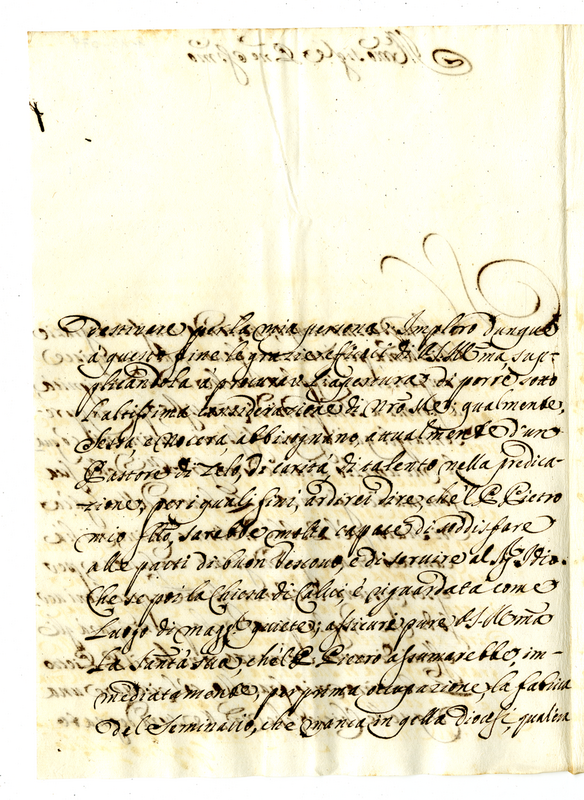 D'restiuere per la mia persona. Imploro dunque
à questo fine le grazie efficaci di V.S. Ill:ma, sup-
plicandola à procurar l'apertura di porre sotto
l'altissima considerazione di Nro Sig:re, qualmente,
Sessa, e Nocera abbisognano, attualmente d'un
Pastore di Zelo, di carità, di talento, nella predica-
zione, per i quali fini, ardirei dire, che'l P. Pietro
mio fllo, sarebbe molto capace di soddisfare
alle parti di buon Vescouo, e di seruire al Sig:r Idio.
Che se poi la Chiesa di Calui è riguardata come
Luogo di magg:r quiete; assicuri pure V.S. Ill:ma
la Santà Sua, che'l P. Pietro assumarebbe, im-
mediatamente, per prima occupazione, la fabrica
del Seminario, che manca in qlla Diocesi, qual'era